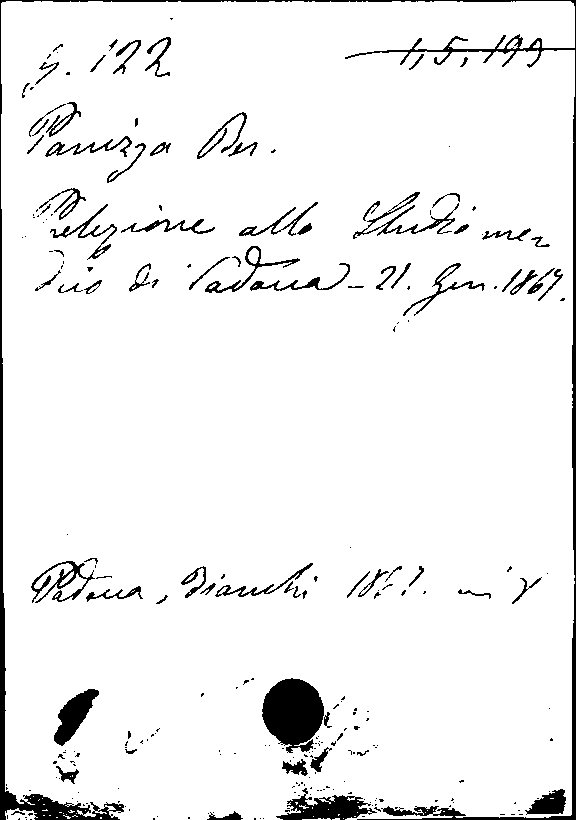 G. 122 1,5,199
Panizza Ber.
Prelezione allo Studio me-
dico di Padova - 21. Gen. 1867.
Padova, Bianchi 1867. in 8